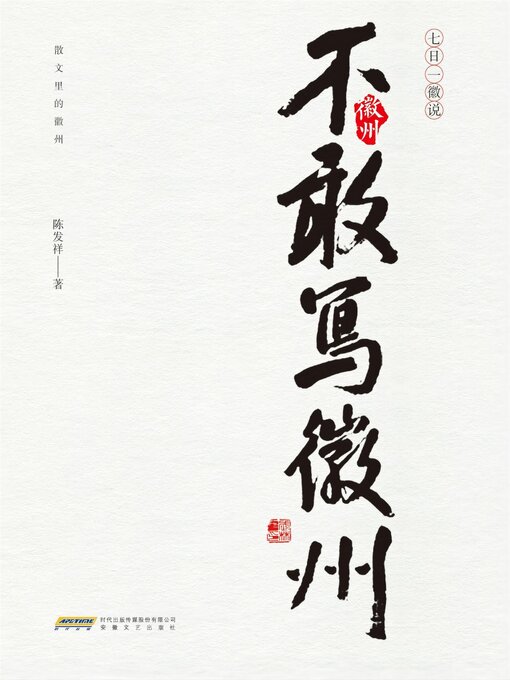 七日一徽说
不敢写徽州
徽州
散文里的徽州
陈发祥——著
APGTIME
时代出版
时代出版传媒股份有限公司
安徽文艺出版社